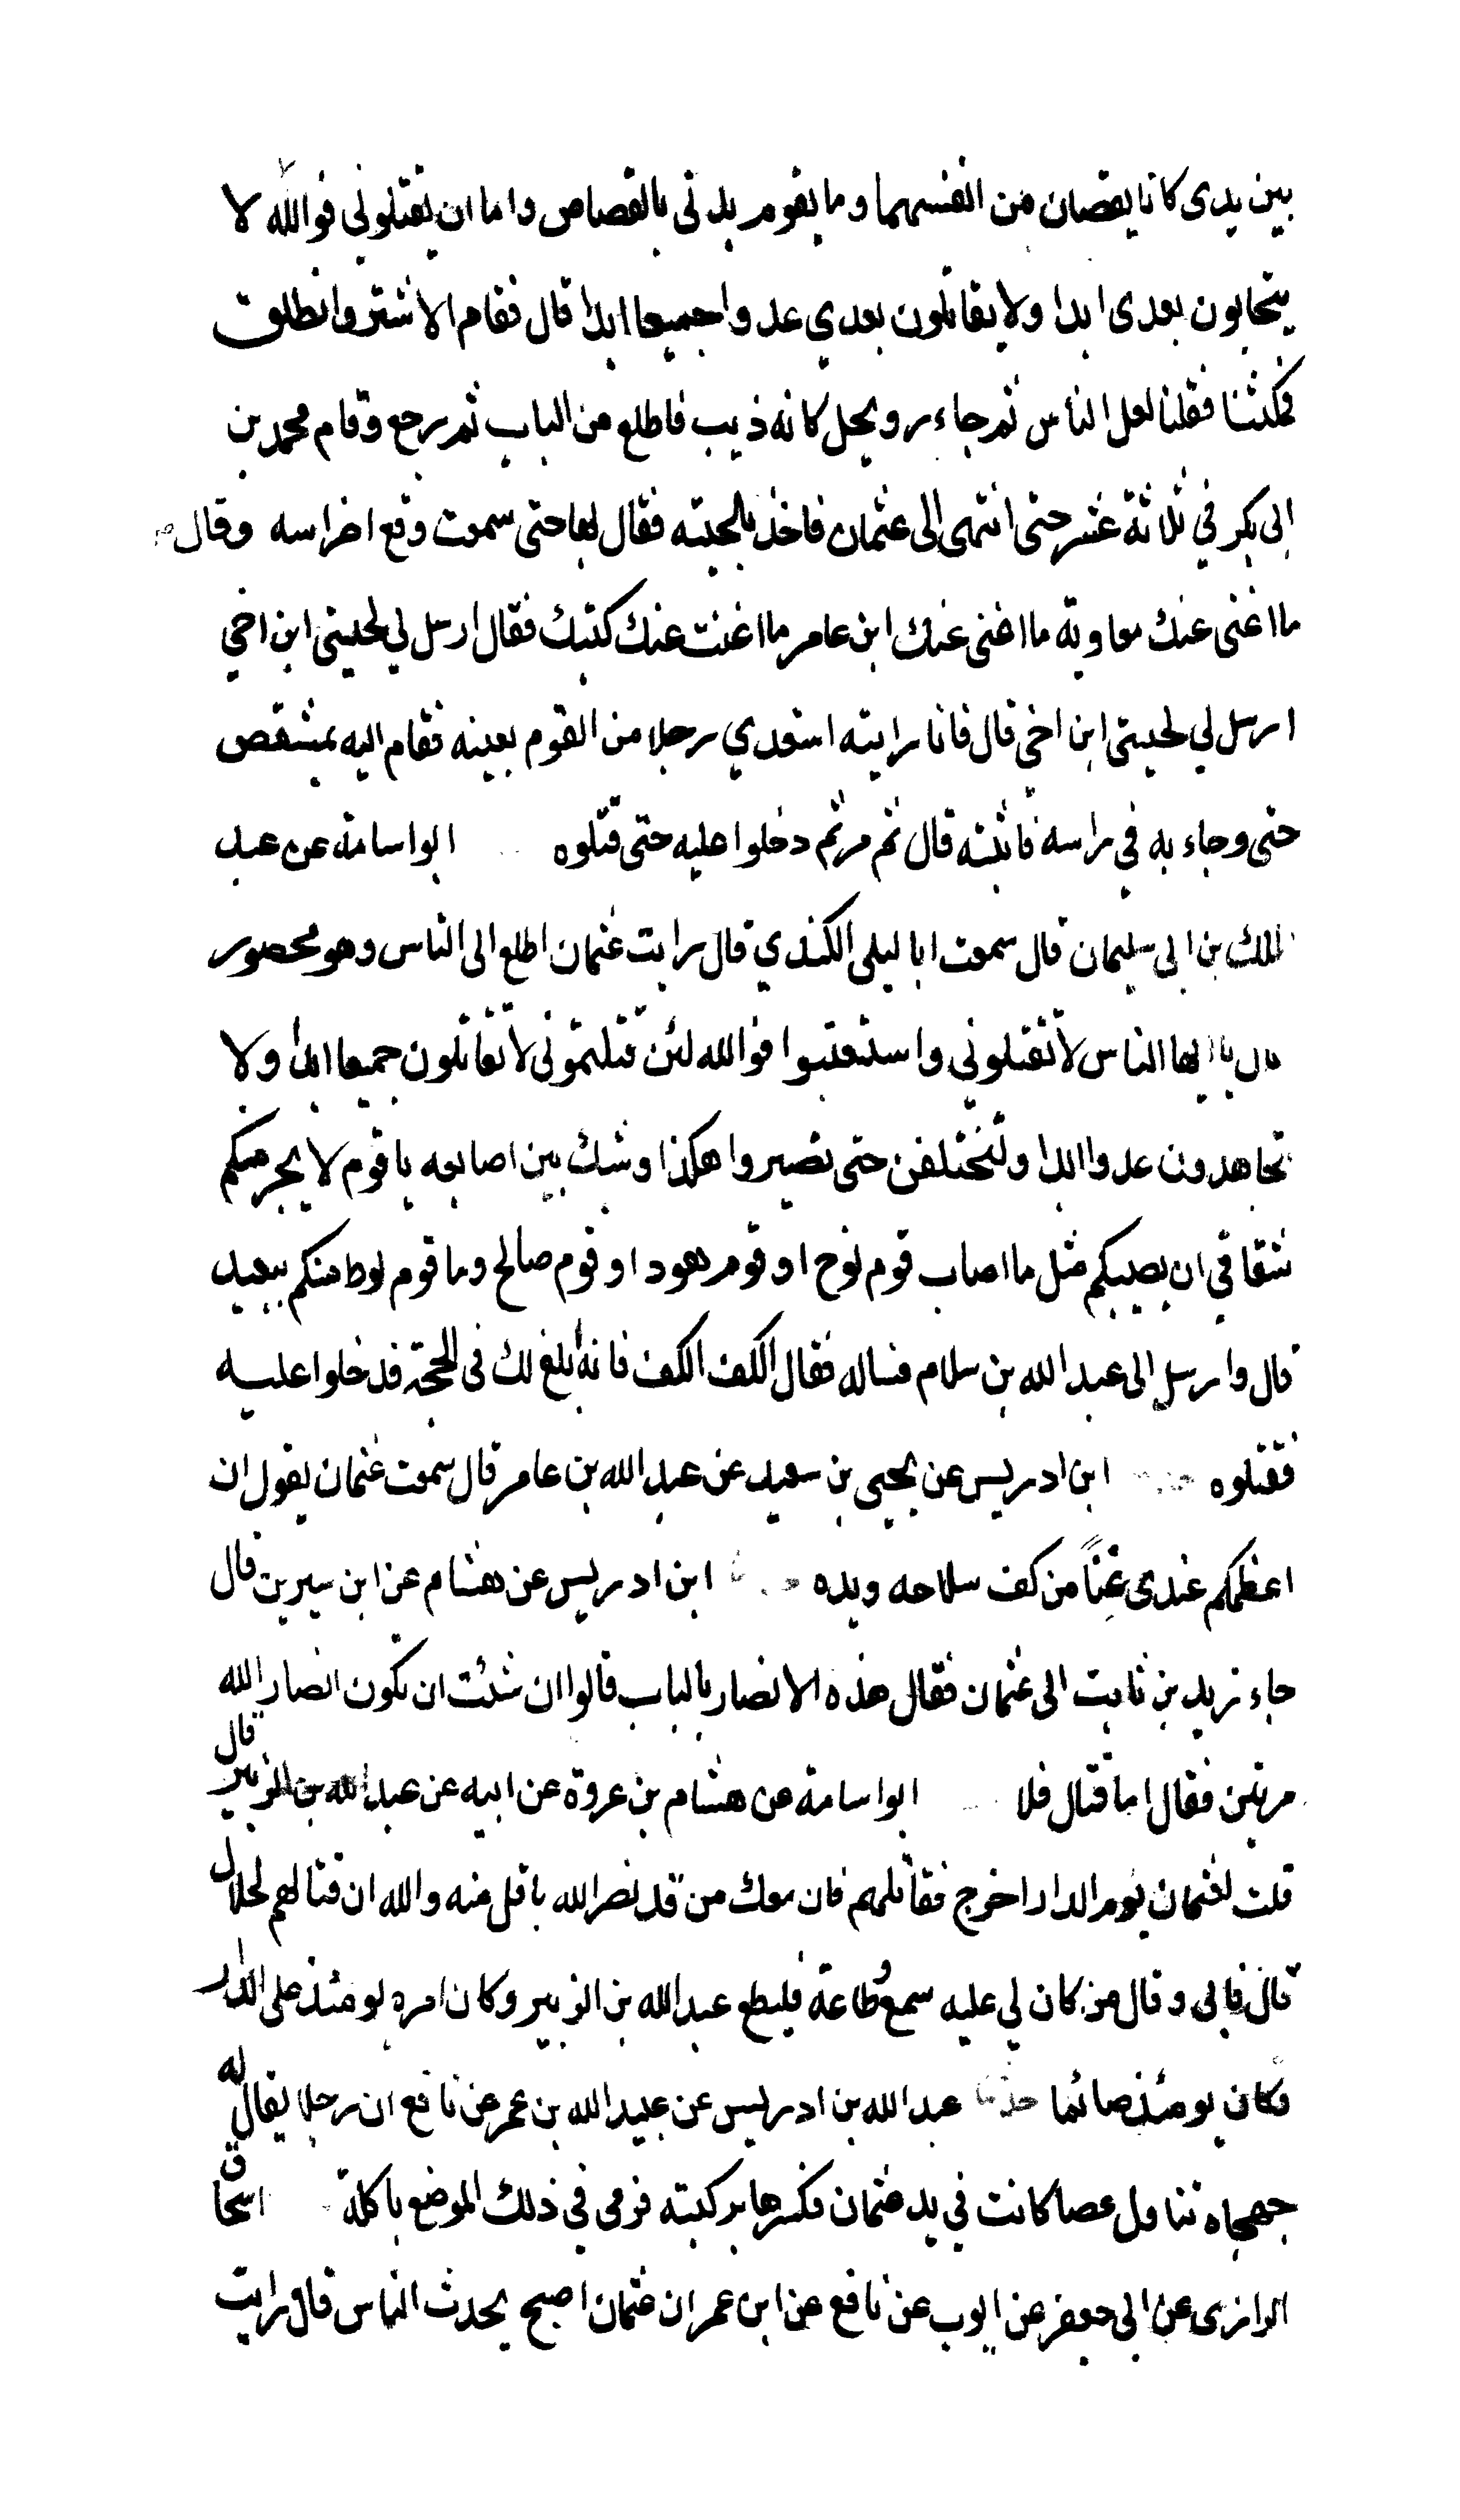 بين يدى كانا يقصان من انفسهما وما يقوم بدنى بالقصاص واما ان يقتلونى فوالله لا
يتحابون بعدى ابدا ولا يقاتلون بعدي عدوا جميعا ابدا قال فقام الاشتر وانطلق
فمكثنا فقلنا لعل الناس ثم جاء رويجل كانه ذيب فاطلع من الباب ثم رجع وقام محمد بن
ابى بكر في ثلاثة عشر حتى انتهى الى عثمان فاخذ بلحيته فقال بها حتى سمعت وقع اضراسه وقال
ما اغنى عنك معاوية ما اغنى عنك ابن عامر ما اغنت عنك كتبك فقال ارسل لي لحيتى ابن اخي
ارسل لي لحيتى ابن اخي قال فانا رايته استعدي رجلا من القوم بعينه فقام اليه بمشقص
حتى وجاء به في راسه فاثبته قال ثم مرثم دخلوا عليه حتى قتلوه ابو اسامة عن عبد
الملك بن ابى سليمان قال سمعت ابا ليلى الكندي قال رايت عثمان اطلع الى الناس وهو محصور
قال يا ايها الناس لا تقتلوني واستعتبوا فوالله لئن قتلتمونى لا تقاتلون جميعا ابدا ولا
تجاهدون عدوا ابدا ولتختلفن حتى تصيروا هكذا وشبك بين اصابعه يا قوم لا يجرمنكم
شقاقي ان يصيبكم مثل ما اصاب قوم نوح او قوم هود او قوم صالح وما قوم لوط منكم ببعيد
قال وارسل الى عبد الله بن سلام فساله فقال الكف الكف فانه ابلغ لك فى الحجة فدخلوا عليه
فقتلوه ابن ادريس عن يحيى بن سعيد عن عبد الله بن عامر قال سمعت عثمان يقول ان
اعظمكم عندى غناً من كف سلاحه ويده ابن ادريس عن هشام عن ابن سيرين قال
جاء زيد بن ثابت الى عثمان فقال هذه الانصار بالباب قالوا ان شئت ان نكون انصار الله
مرتين فقال اما قتال فلا ابو اسامة عن هشام بن عروة عن ابيه عن عبد الله بن الزبير قال
قلت لعثمان يوم الدار اخرج فقاتلهم فان معك من قد نصر الله باقل منه والله ان قتالهم لحلال
قال فابى وقال من كان لي عليه سمع وطاعة فليطع عبد الله بن الزبير وكان امره يومئذ على الدار
وكان يومئذ صائما حدثنا عبد الله بن ادريس عن عبيد الله بن عمر عن نافع ان رجلا يقال له
جهجاه تناول عصا كانت في يد عثمان فكسرها بركبته فرمى في ذلك الموضع باكلة اسحاق
الرازى عن ابى جعفر عن ايوب عن نافع عن ابن عمر ان عثمان اصبح يحدث الناس قال رايت